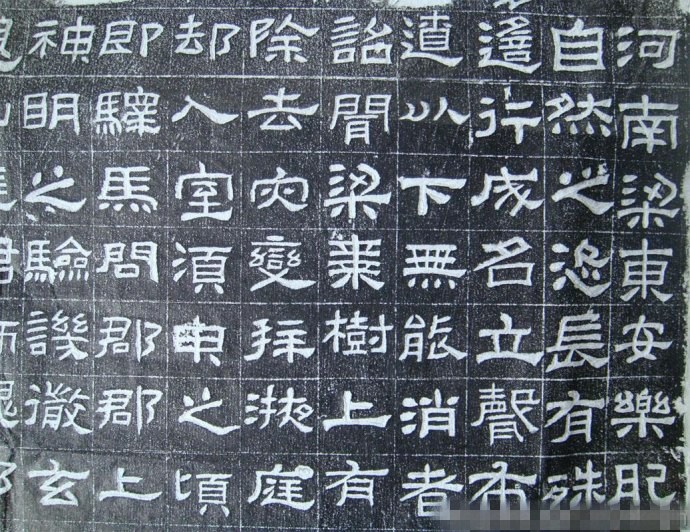 河南梁東安樂肥
自然之恣長有殊
遙行成名立聲布
遼以下無能消者
詔聞梁棗樹上有
除去灾變拜掖庭
却入室須臾之頃
即驛馬問郡郡上
神明之驗譏徹玄